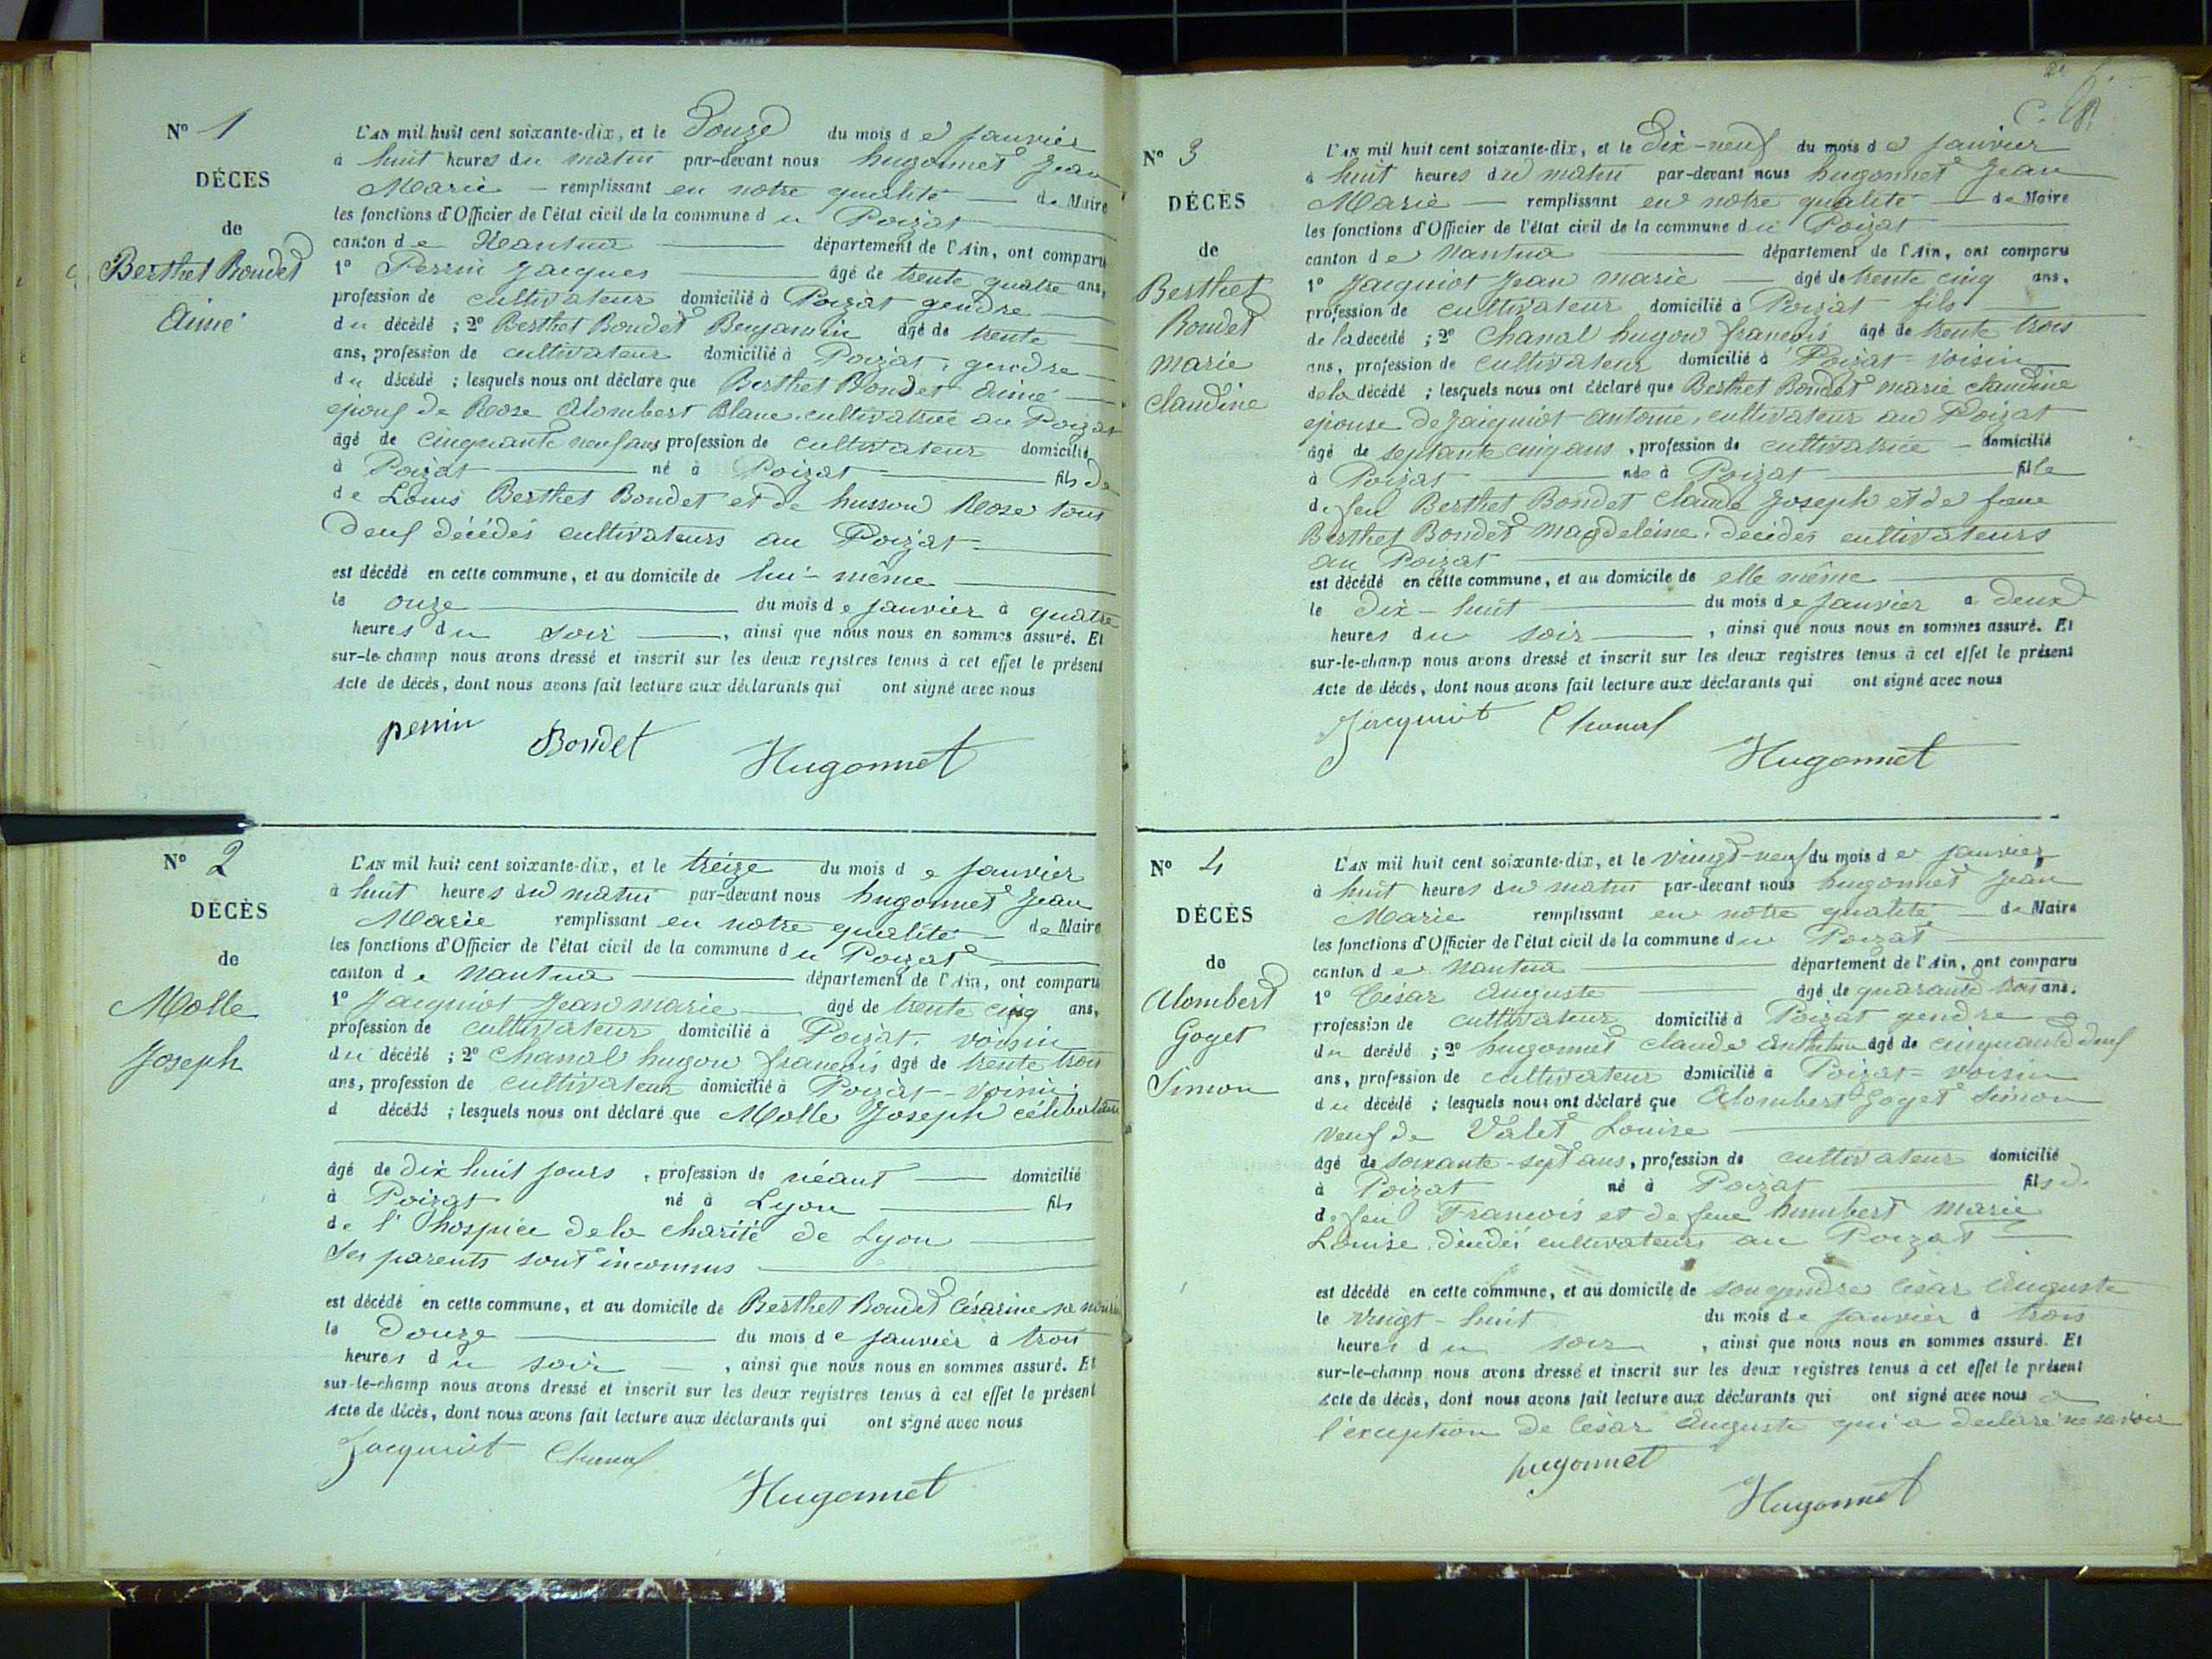 N° 1
DÉCES
de
Berthet Bondet
Aimé
L'AN mil huit cent soixante-dix, et le Douze du mois de Janvier
à huit heures du matin par-devant nous hugonnet Jean
Marie — remplissant en notre qualité — de Maire
les fonctions d'Officier de l'état civil de la commune du Poizat
canton de Nantua — département de l'Ain, ont comparu
1° Perrin Jacques — âgé de trente quatre ans,
profession de cultivateur domicilié à Poizat gendre
du décédé ; 2° Berthet Bondet Benjamin âgé de trente
ans, profession de cultivateur domicilié à Poizat, gendre
du décédé ; lesquels nous ont déclaré que Berthet Bondet Aimé
époux de Rose Alombert Blanc, cultivatrice au Poizat
âgé de cinquante neuf ans profession de cultivateur domicilié
à Poizat — né à Poizat — fils de
de Louis Berthet Bondet et de husson Rose tous
deux décédés cultivateurs au Poizat
est décédé en cette commune, et au domicile de lui-même
le onze — du mois de Janvier à quatre
heures du soir —, ainsi que nous nous en sommes assuré. Et
sur-le-champ nous avons dressé et inscrit sur les deux registres tenus à cet effet le présent
Acte de décès, dont nous avons fait lecture aux déclarants qui ont signé avec nous
perrin Bondet Hugonnet
N° 2
DÉCÈS
de
Molle
Joseph
L'AN mil huit cent soixante-dix, et le treize du mois de Janvier
à huit heures du matin par-devant nous hugonnet Jean
Marie remplissant en notre qualité — de Maire
les fonctions d'Officier de l'état civil de la commune du Poizat
canton de Nantua — département de l'Ain, ont comparu
1° Jacquiot Jean marie — âgé de trente cinq ans,
profession de cultivateur domicilié à Poizat, voisin
du décédé ; 2° Chanal hugon françois âgé de trente trois
ans, profession de cultivateur domicilié à Poizat - voisin
d décédé ; lesquels nous ont déclaré que Molle Joseph célibataire
âgé de dix huit jours, profession de néant — domicilié
à Poizat né à Lyon — fils
de l'hospice de la charité de Lyon
Ses parents sont inconnus
est décédé en cette commune, et au domicile de Berthet Bondet Césarine
le Douze — du mois de Janvier à trois
heures du soir —, ainsi que nous nous en sommes assuré. Et
sur-le-champ nous avons dressé et inscrit sur les deux registres tenus à cet effet le présent
Acte de décès, dont nous avons fait lecture aux déclarants qui ont signé avec nous
Jacquiot Chanal
Hugonnet
N° 3
DÉCÈS
de
Berthet
Bondet
marie
claudine
L'AN mil huit cent soixante-dix, et le Dix-neuf du mois de Janvier
à huit heures du matin par-devant nous hugonnet Jean
Marie — remplissant en notre qualité — de Maire
les fonctions d'Officier de l'état civil de la commune du Poizat
canton de Nantua — département de l'Ain, ont comparu
1° Jacquiot Jean marie — âgé de trente cinq ans,
profession de cultivateur domicilié à Poizat fils
de la décédé ; 2° Chanal hugon françois âgé de trente trois
ans, profession de cultivateur domicilié à Poizat - voisin
de la décédé ; lesquels nous ont déclaré que Berthet Bondet marie claudine
épouse de Jacquiot antoine, cultivateur au Poizat
âgé de septante cinq ans, profession de cultivatrice — domicilié
à Poizat — née à Poizat — fille
de feu Berthet Bondet Claude Joseph et de feue
Berthet Bondet Magdeleine, décédés cultivateurs
au Poizat
est décédé en cette commune, et au domicile de elle même
le Dix-huit — du mois de Janvier à deux
heures du soir —, ainsi que nous nous en sommes assuré. Et
sur-le-champ nous avons dressé et inscrit sur les deux registres tenus à cet effet le présent
Acte de décès, dont nous avons fait lecture aux déclarants qui ont signé avec nous
Jacquiot Chanal
Hugonnet
N° 4
DÉCÈS
de
Alombert
Goget
Simon
L'AN mil huit cent soixante-dix, et le vingt-neuf du mois de Janvier
à huit heures du matin par-devant nous hugonnet Jean
Marie remplissant en notre qualité — de Maire
les fonctions d'Officier de l'état civil de la commune du Poizat
canton de Nantua — département de l'Ain, ont comparu
1° César Auguste — âgé de quarante trois ans,
profession de cultivateur domicilié à Poizat gendre
du décédé ; 2° hugonnet Claude Anthelme âgé de cinquante deux
ans, profession de cultivateur domicilié à Poizat - voisin
du décédé ; lesquels nous ont déclaré que Alombert Goget Simon
veuf de Valet Louise
âgé de soixante-sept ans, profession de cultivateur domicilié
à Poizat né à Poizat — fils de
de feu François et de feue humbert Marie
Louise, décédés cultivateurs au Poizat
est décédé en cette commune, et au domicile de son gendre César Auguste
le vingt-huit du mois de Janvier à trois
heures du soir, ainsi que nous nous en sommes assuré. Et
sur-le-champ nous avons dressé et inscrit sur les deux registres tenus à cet effet le présent
Acte de décès, dont nous avons fait lecture aux déclarants qui ont signé avec nous a
l'exception de César Auguste qui a déclaré ne savoir
hugonnet
Hugonnet